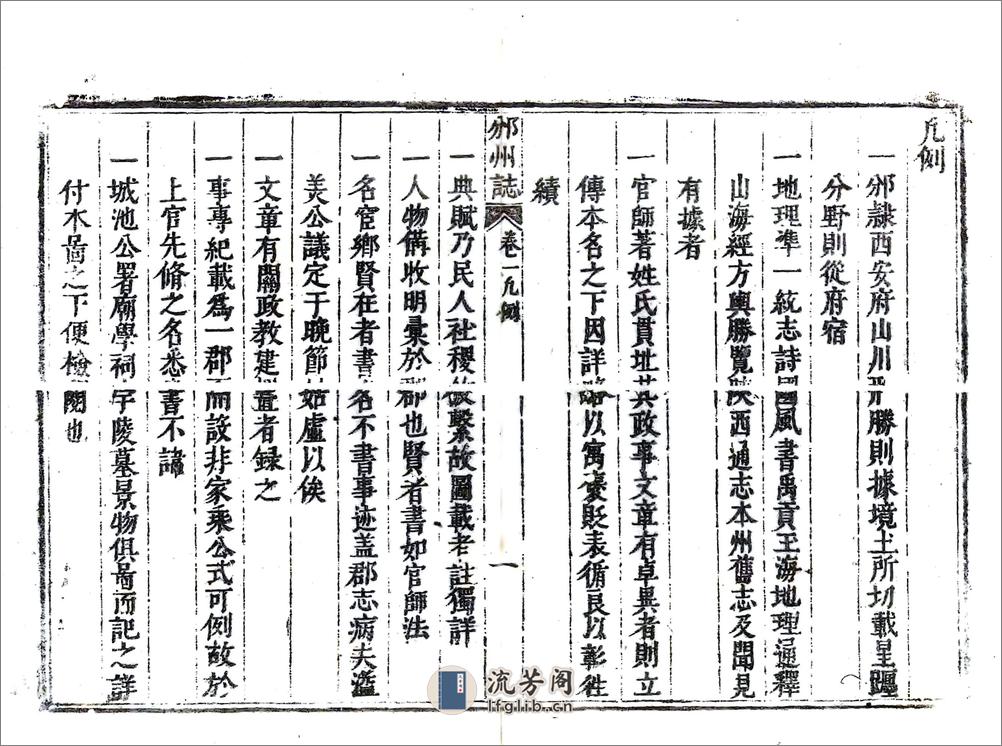 凡例
一邠隸西安府山川形勝則據境土所切載星躔
分野則從府宿
一地理準一統志詩國風書禹貢玉海地理通釋
山海經方輿勝覽陝西通志本州舊志及聞見
有據者
一官師著姓氏貫址其政事文章有卓異者則立
傳本名之下因詳略以寓褒貶表循良以彰徃
績
邠州誌 卷一凡例 一
一典賦乃民人社稷攸繫故圖載者註獨詳
一人物備收明彙於郡也賢者書如官師法
一名宦鄉賢在者書名不書事迹盖郡志病夫濫
美公議定于晚節姑虛以俟
一文章有關政教建置者録之
一事專紀載為一郡而設非家乘公式可例故於
上官先脩之名悉書不諱
一城池公署廟學祠宇陵墓景物俱啚而記之詳
付本啚之下便檢閱也
流芳阁
lfglib.cn